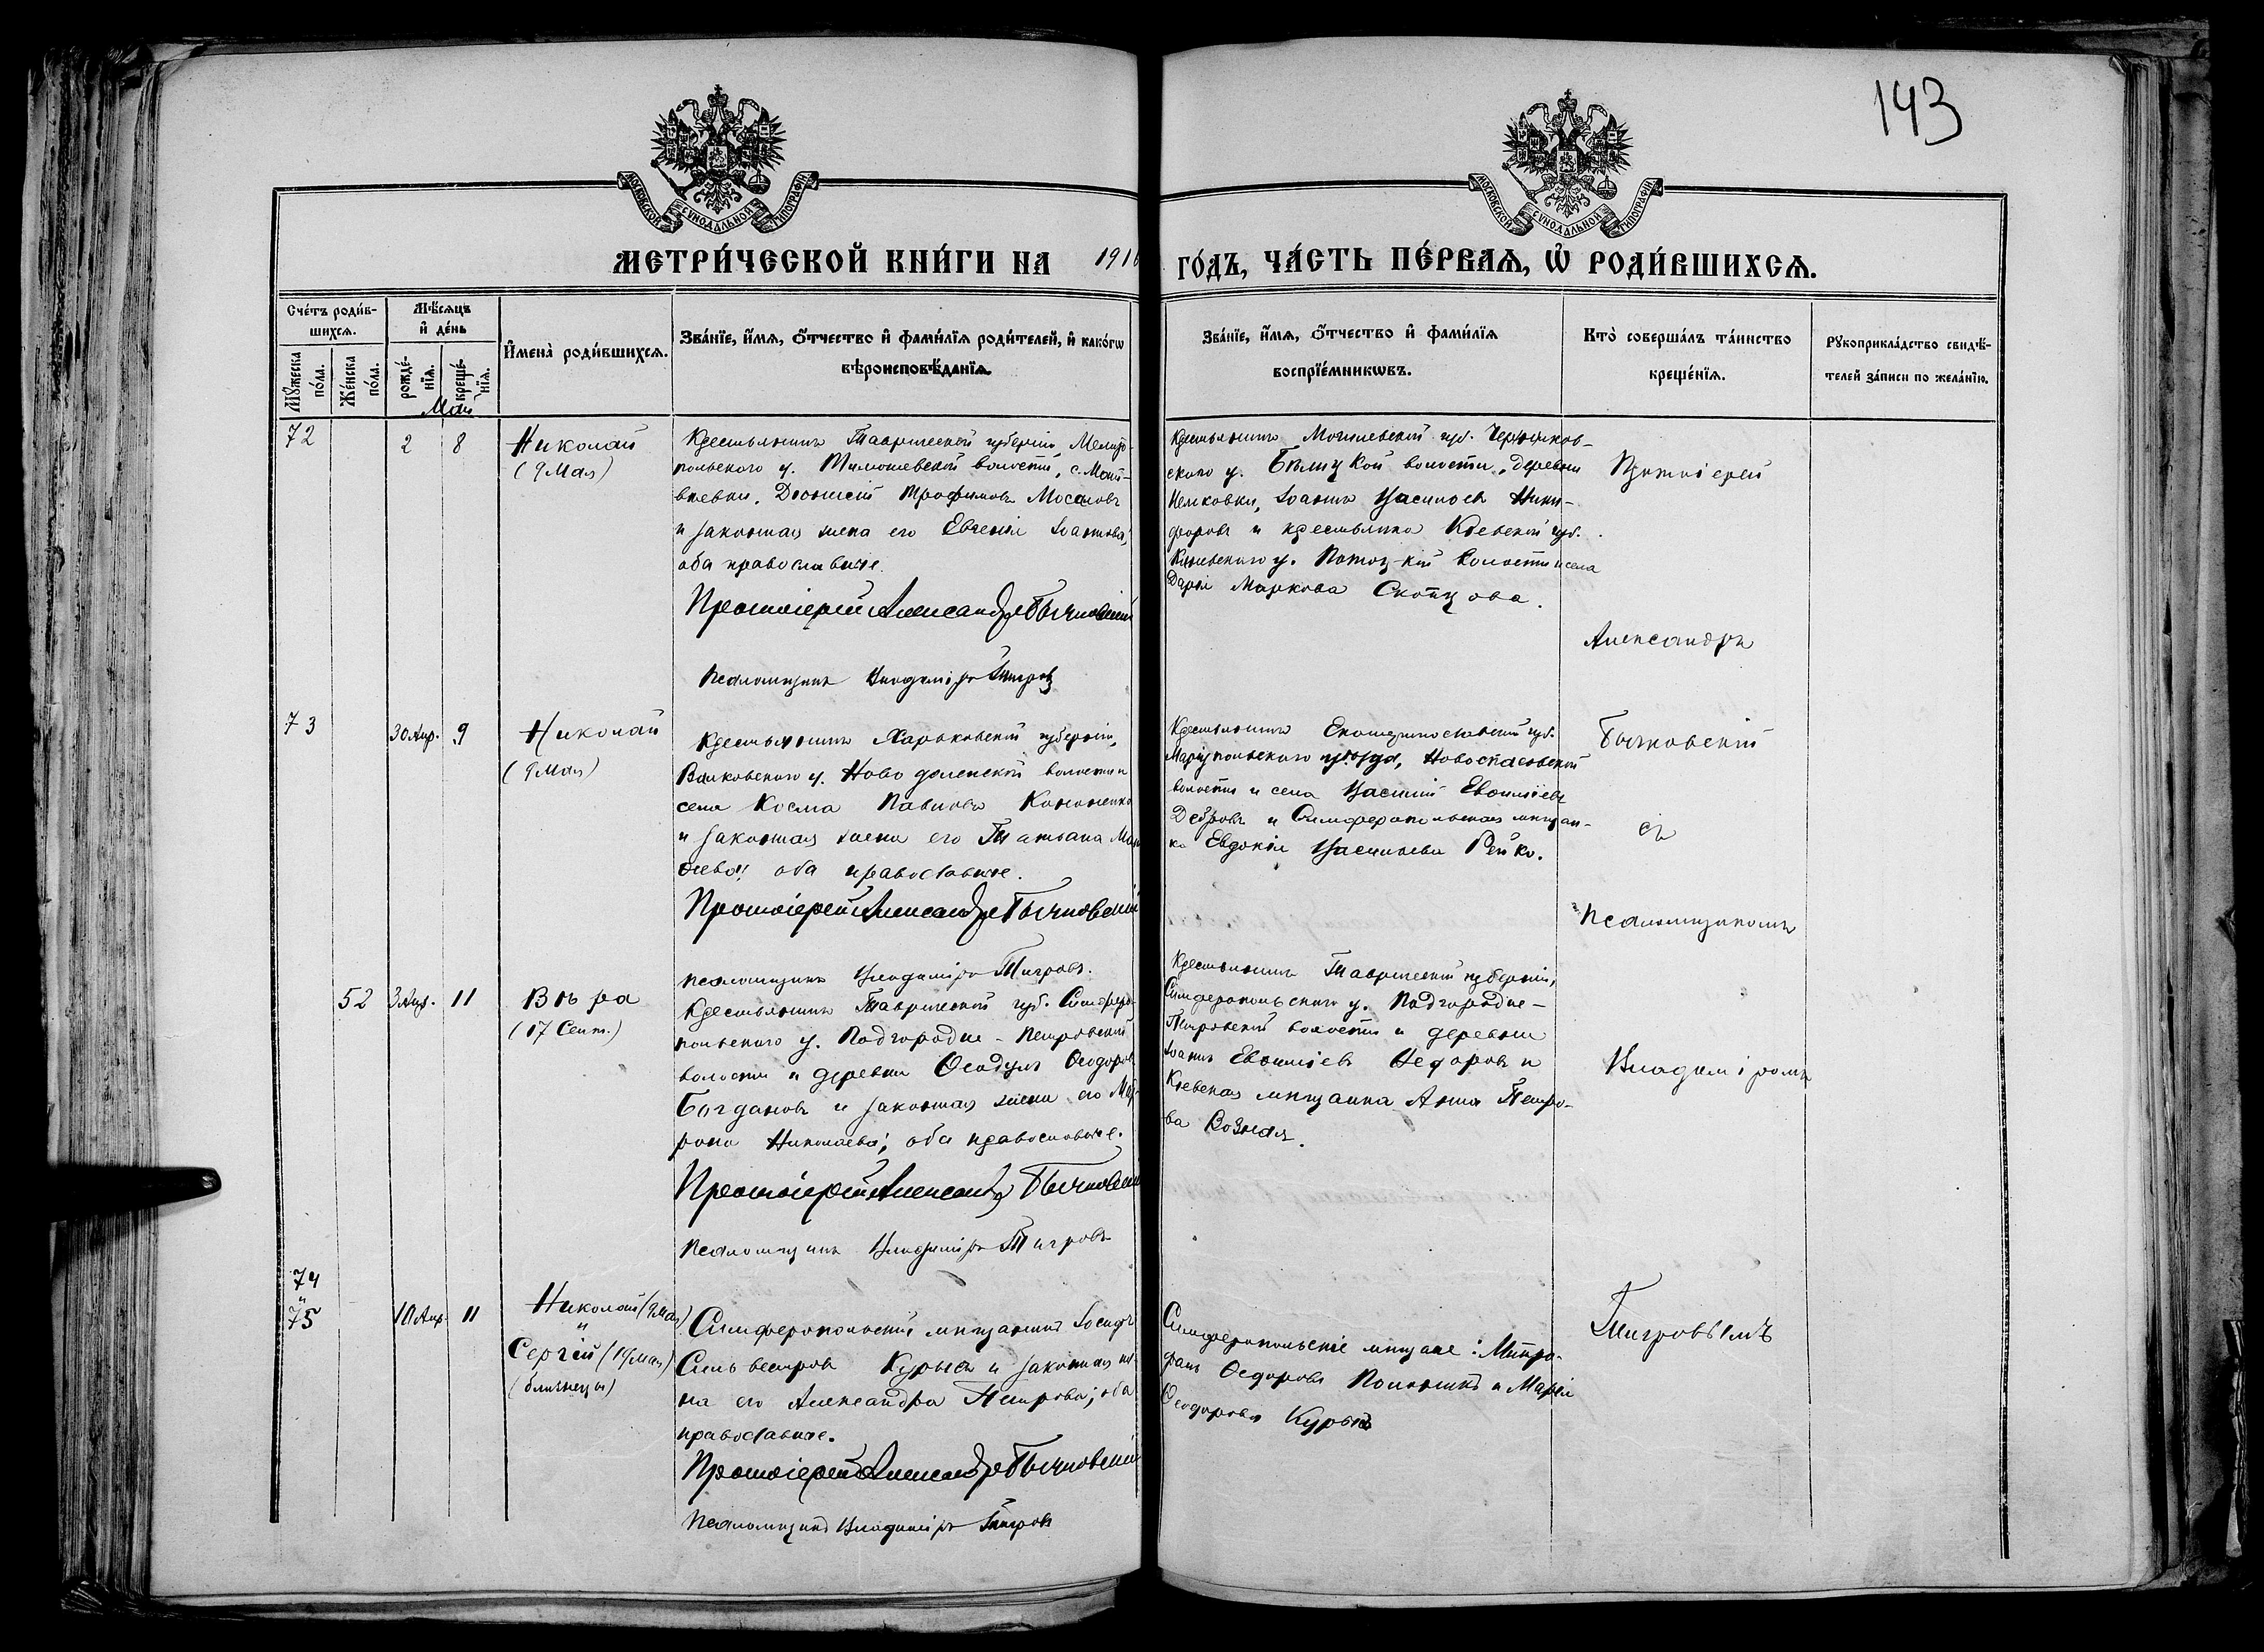 143
МОСКОВСКОЙ СѴНОДАЛЬНОЙ ТИПОГРАФІИ
МОСКОВСКОЙ СѴНОДАЛЬНОЙ ТИПОГРАФІИ
МЕТРИ́ЧЕСКОЙ КНИ́ГИ НА 191
ГО́ДЪ, ЧА́СТЬ ПЕ́РВАѦ, Ѡ҆ РОДИ́ВШИХСѦ.
Сче́тъ роди́в-
шихсѧ.
Мꙋ́жеска по́ла.
Же́нска по́ла.
Мѣ́сѧцъ
и҆ де́нь
рожде́-
нїѧ.
креще́-
нїѧ.
И҆мена̀ роди́вшихсѧ.
Зва́нїе, и҆́мѧ, ѻ҆́тчество и҆ фами́лїѧ роди́телей, и҆ како́гѡ
вѣроисповѣ́данїѧ.
Зва́нїе, и҆́мѧ, ѻ҆́тчество и҆ фами́лїѧ
воспрїе́мникѡвъ.
Кто̀ соверша́лъ та́инство
креще́нїѧ.
Рꙋкоприкла́дство свидѣ́-
телей за́писи по жела́нїю.
Май
72
2 8
Николай
(9 Мая)
Крестьянинъ Таврической губерніи, Мелито-
польскаго у. Тимошевской волости, с.
Діонисій Трофимовъ Мосаловъ
и законная жена его Евгенія Іоаннова,
оба православные.
Протоіерей Александръ Бычковскій
Псаломщикъ Владиміръ Тигровъ
Крестьянинъ Могилевской губ.
скаго у. Бѣлицкой волости, деревни
Іоаннъ Васильевъ Ники-
форовъ и крестьянка Кіевской губ.
Каневскаго у. волости и села
Дарія Маркова Скопцова.
Протоіерей
Александръ
Бычковскій
съ
псаломщикомъ
Владиміромъ
Тигровымъ
73
30 Апр. 9
Николай
(9 Мая)
Крестьянинъ Харьковской губерніи,
Валковскаго у. Ново волости и
села Косма Павловъ Кононенко
и законная жена его Татьяна
оба православные.
Протоіерей Александръ Бычковскій
псаломщикъ Владиміръ Тигровъ.
Крестьянинъ Екатеринославской губ.
Маріупольскаго уѣзда, Новоспасовской
волости и села Василій Евфиміевъ
и Симферопольская мѣщан-
ка Евдокія Васильева Рейко.
52
3 Апр. 11
Вѣра
(17 Сент.)
Крестьянинъ Таврической губ. Симферо-
польскаго у. Подгородне-Петровской
волости и деревни Ѳеодоръ
Богдановъ и законная жена его
Николаева; оба православные.
Протоіерей Александръ Бычковскій
Псаломщикъ Владиміръ Тигровъ
Крестьянинъ Таврической губерніи,
Симферопольскаго у. Подгородне-
Петровской волости и деревни
Іоаннъ Евфиміевъ Ѳедоровъ и
Кіевская мѣщанка Анна Петро-
ва
74
и
75
10 Апр. 11
Николай (9 Мая)
и
Сергій (
(близнецы)
Симферопольскій мѣщанинъ Іосифъ
Сильвестровъ Курыса и законная же-
на его Александра Петрова; оба
православные.
Протоіерей Александръ Бычковскій
Псаломщикъ Владиміръ Тигровъ
Симферопольскіе мѣщане: Митро-
фанъ Ѳедоровъ и Марія
Ѳеодорова Курыса